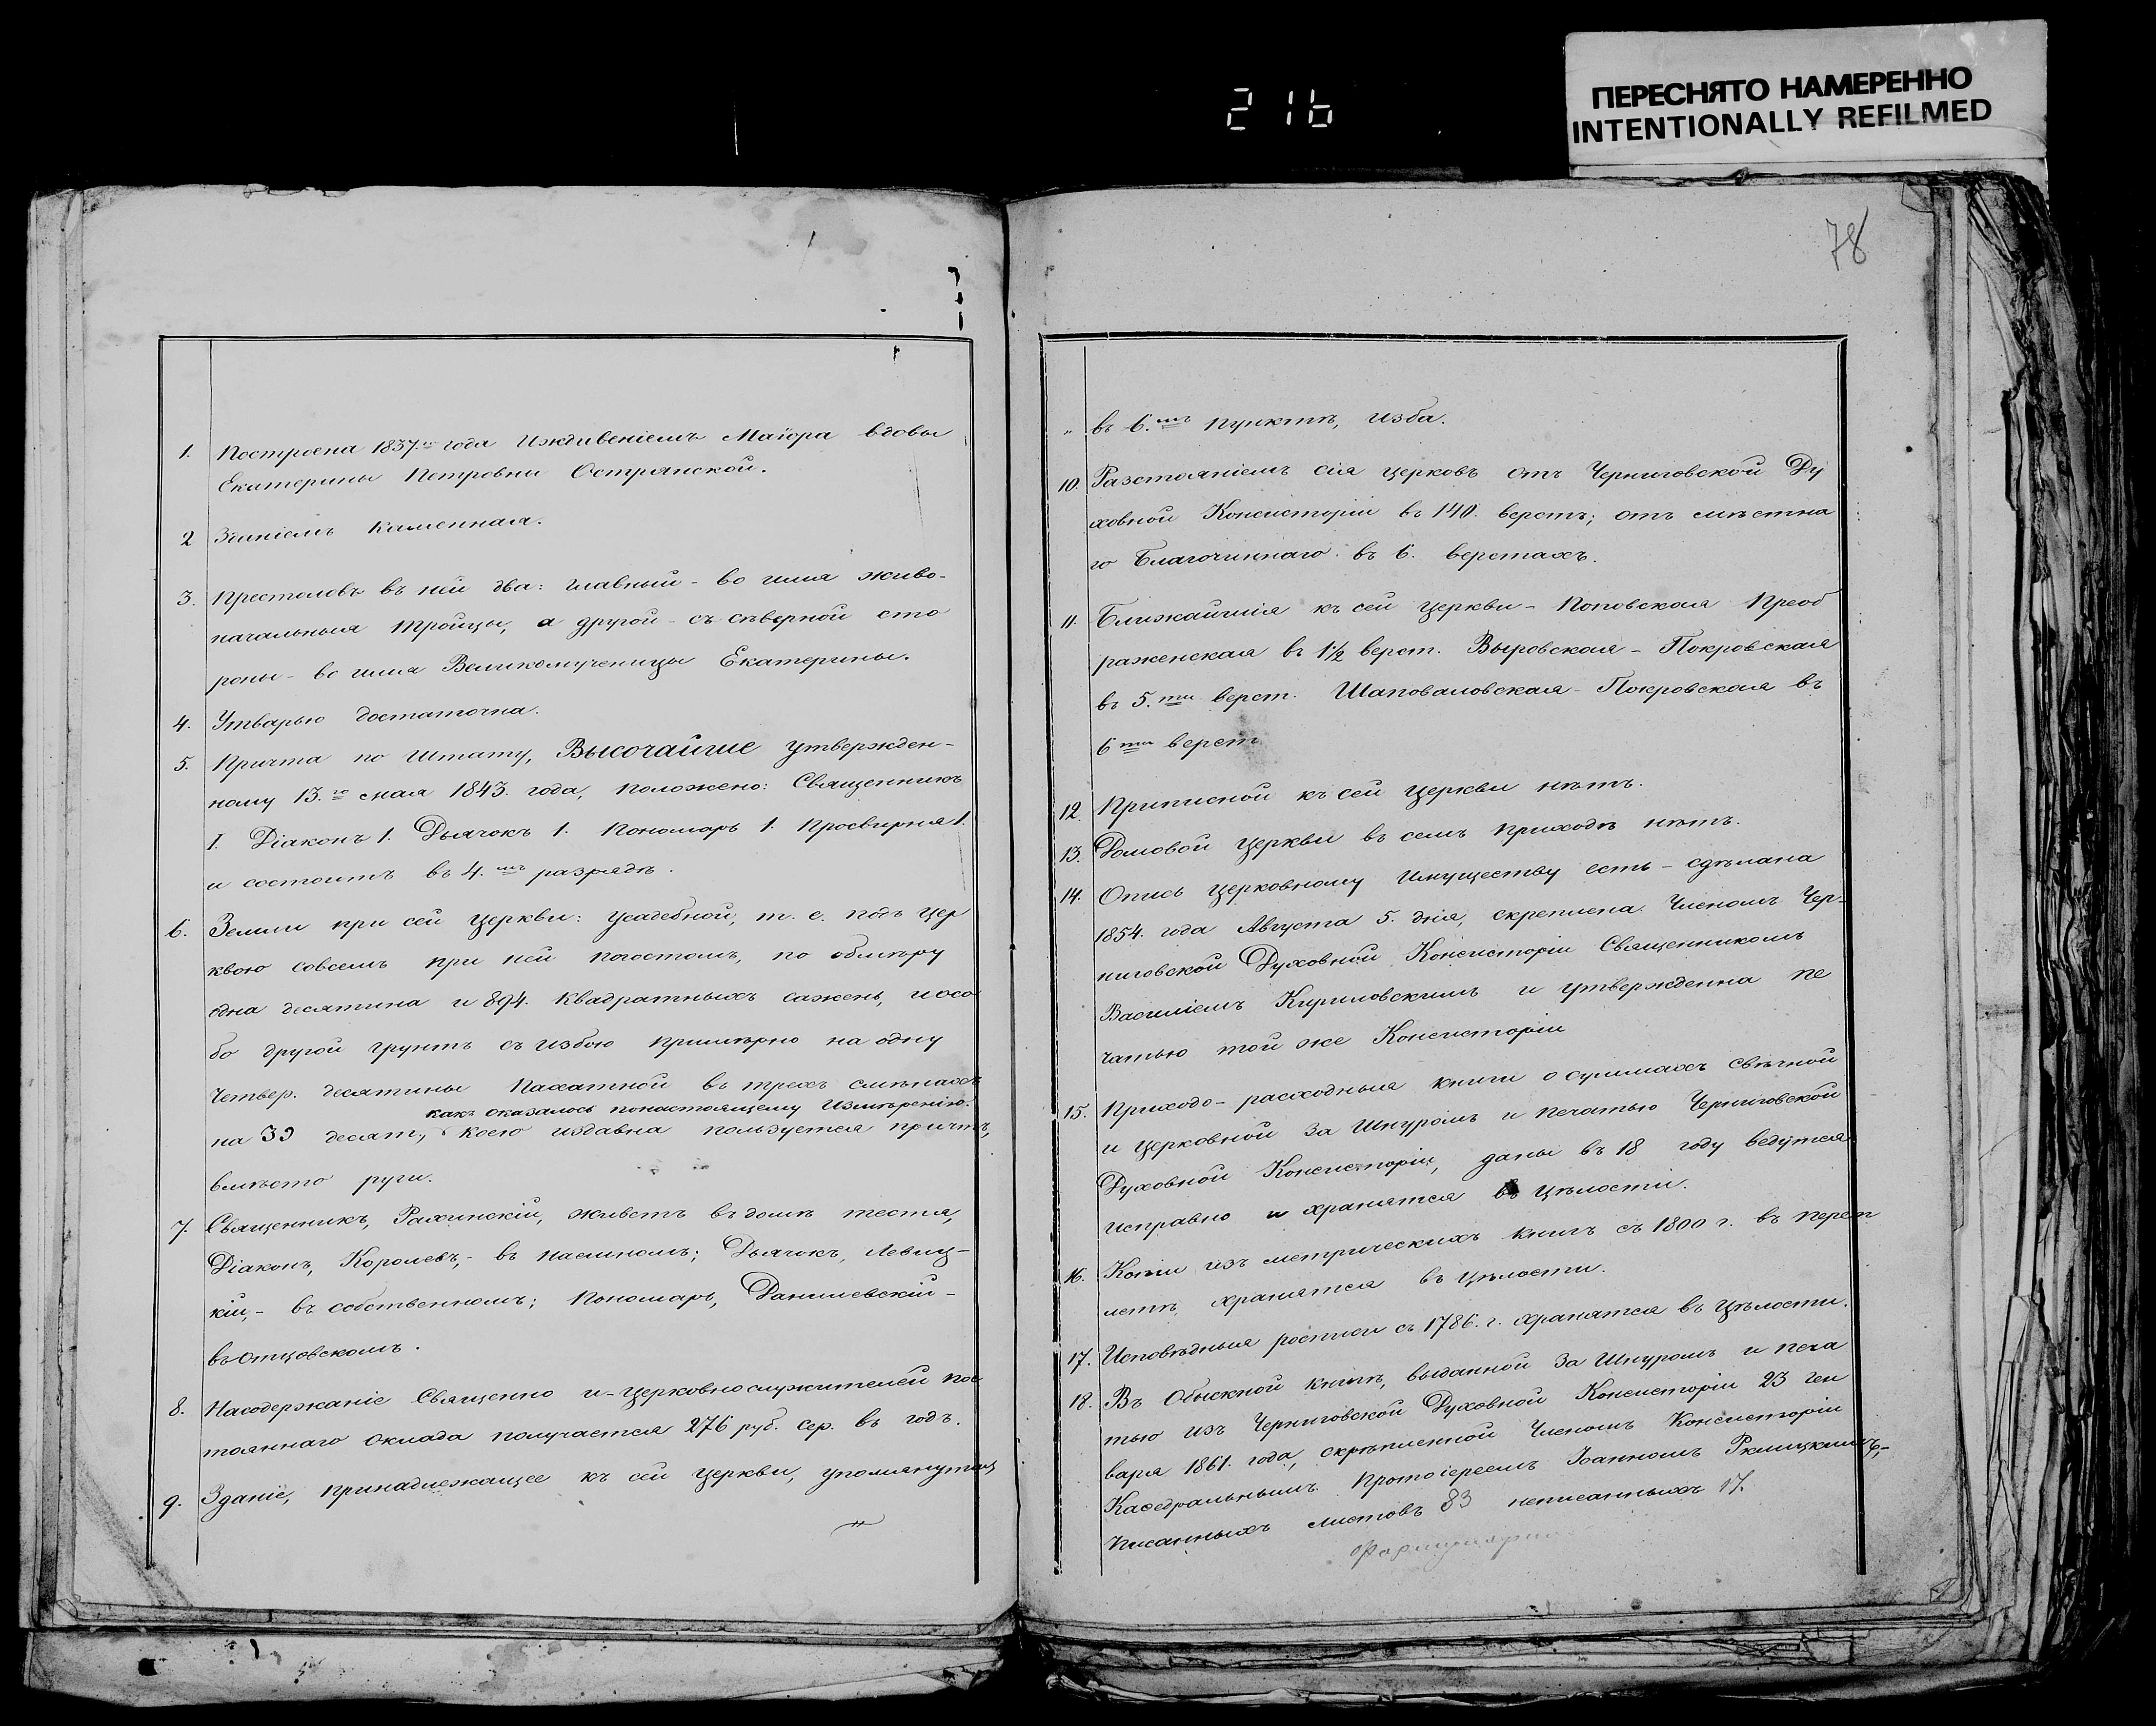 216
ПЕРЕСНЯТО НАМЕРЕННО
INTENTIONALLY REFILMED
78
1. Построена 1837.го года Иждивеніемъ Маіора вдовы
Екатерины Петровни Острянской.
2 Зданіемъ каменная.
3. Престоловъ въ ней два: главный - во имя живо-
начальныя Троицы, а другой - съ сѣверной сто
роны - во имя Великомученицы Екатерины.
4. Утварью достаточна.
5. Причта по Штату, Высочайше утвержден-
ному 13.го мая 1843. года, положено: Священникъ
1. Діаконъ 1. Дьячокъ 1. Пономарь 1. Просвирня 1.
и состоитъ въ 4.мъ разрядѣ.
6. Земли при сей церкви: усадебной, т. е. подъ цер
квою совсемъ при ней погостомъ, по обмѣру
одна десятина и 894. квадратныхъ сажень, и осо
бо другой грунтъ съ избою примѣрно на одну
четвер. десятины Пахатной въ трехъ смѣнахъ
какъ оказалось понастоящему Измѣренію.
на 39 десят., коею издавна пользуется причтъ,
вмѣсто руги.
7. Священникъ, Рахинскій, живетъ въ домѣ тестя,
Діаконъ, Королевъ, - въ наемномъ; Дьячокъ, Левиц-
кій, - въ собственномъ; Пономарь, Данилевскій -
въ отцовскомъ.
8. Насодержаніе Священно и-церковнослужителей пос
тояннаго оклада получается 276 руб. сер. въ годъ.
9. Зданіе, принадлежащее къ сей церкви, упомянутая
" въ 6.мъ пунктѣ, изба.
10. Разстояніемъ сія церковъ отъ Черниговской Ду
ховной Консисторіи въ 140. верстъ; отъ мѣстна
го Благочиннаго въ 6. верстахъ.
11. Ближайшія къ сей церкви - Поповская Преоб
раженская въ 1½ верст. Выровская - Покровская
въ 5.ти верст. Шаповаловская - Покровская въ
6ти верст.
12. Приписной къ сей церкви нѣтъ.
13. Домовой церкви въ семъ приходѣ нѣтъ.
14. Опись церковному имуществу есть - сдѣлана
1854. года Августа 5. дня, скреплена Членомъ Чер-
ниговской Духовной Консисторіи Священникомъ
Василіемъ Кириловскимъ и утвержденна пе
чатью той же Консисторіи
15. Приходо - расходныя книги о суммахъ свѣчной
и церковной за шнуромъ и печатью Черниговской
Духовной Консисторіи, даны въ 18 году ведутся
исправно и хранятся въ цѣлости.
16. Копіи изъ метрическихъ книгъ съ 1800 г. въ переп
летѣ, хранятся въ цѣлости.
17. Исповѣдныя росписи съ 1786. г. хранятся въ цѣлости.
18. Въ Обыскной книгѣ, выданной за Шнуромъ и печа
тью изъ Черниговской Духовной Консисторіи 23 ген
варя 1861. года, скрѣпленной Членомъ Консисторіи
Каѳедральнымъ Протоіереемъ Іоанномъ
Писанныхъ листовъ 83 неписанныхъ 17.